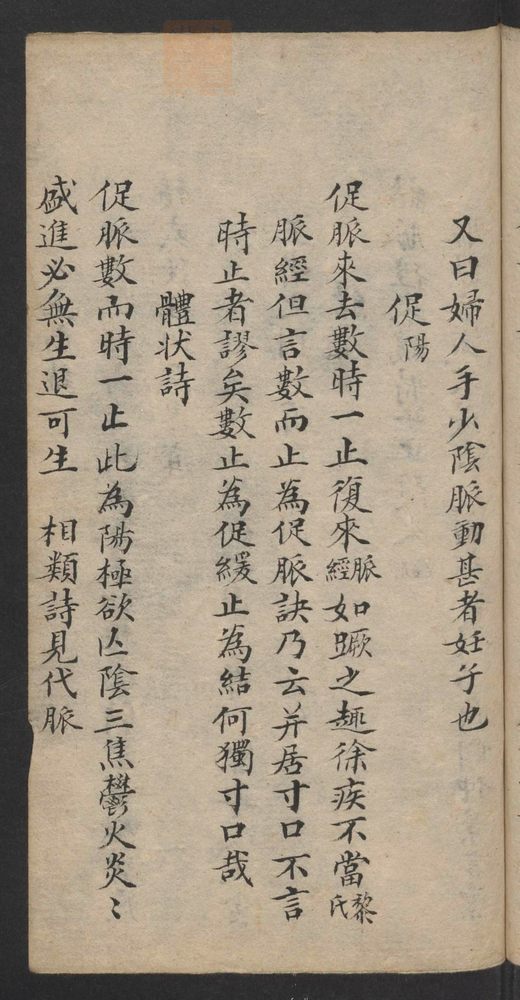 又曰婦人手少陰脈動甚者妊子也
促陽
促脈來去數時一止復來脈經如蹶之趣徐疾不當黎氏
脈經但言數而止為促脈訣乃云并居寸口不言
時止者謬矣數止為促緩止為結何獨寸口哉
體状詩
促脈數而時一止此為陽極欲亾陰三焦鬱火炎〻
盛進必無生退可生 相類詩見代脈